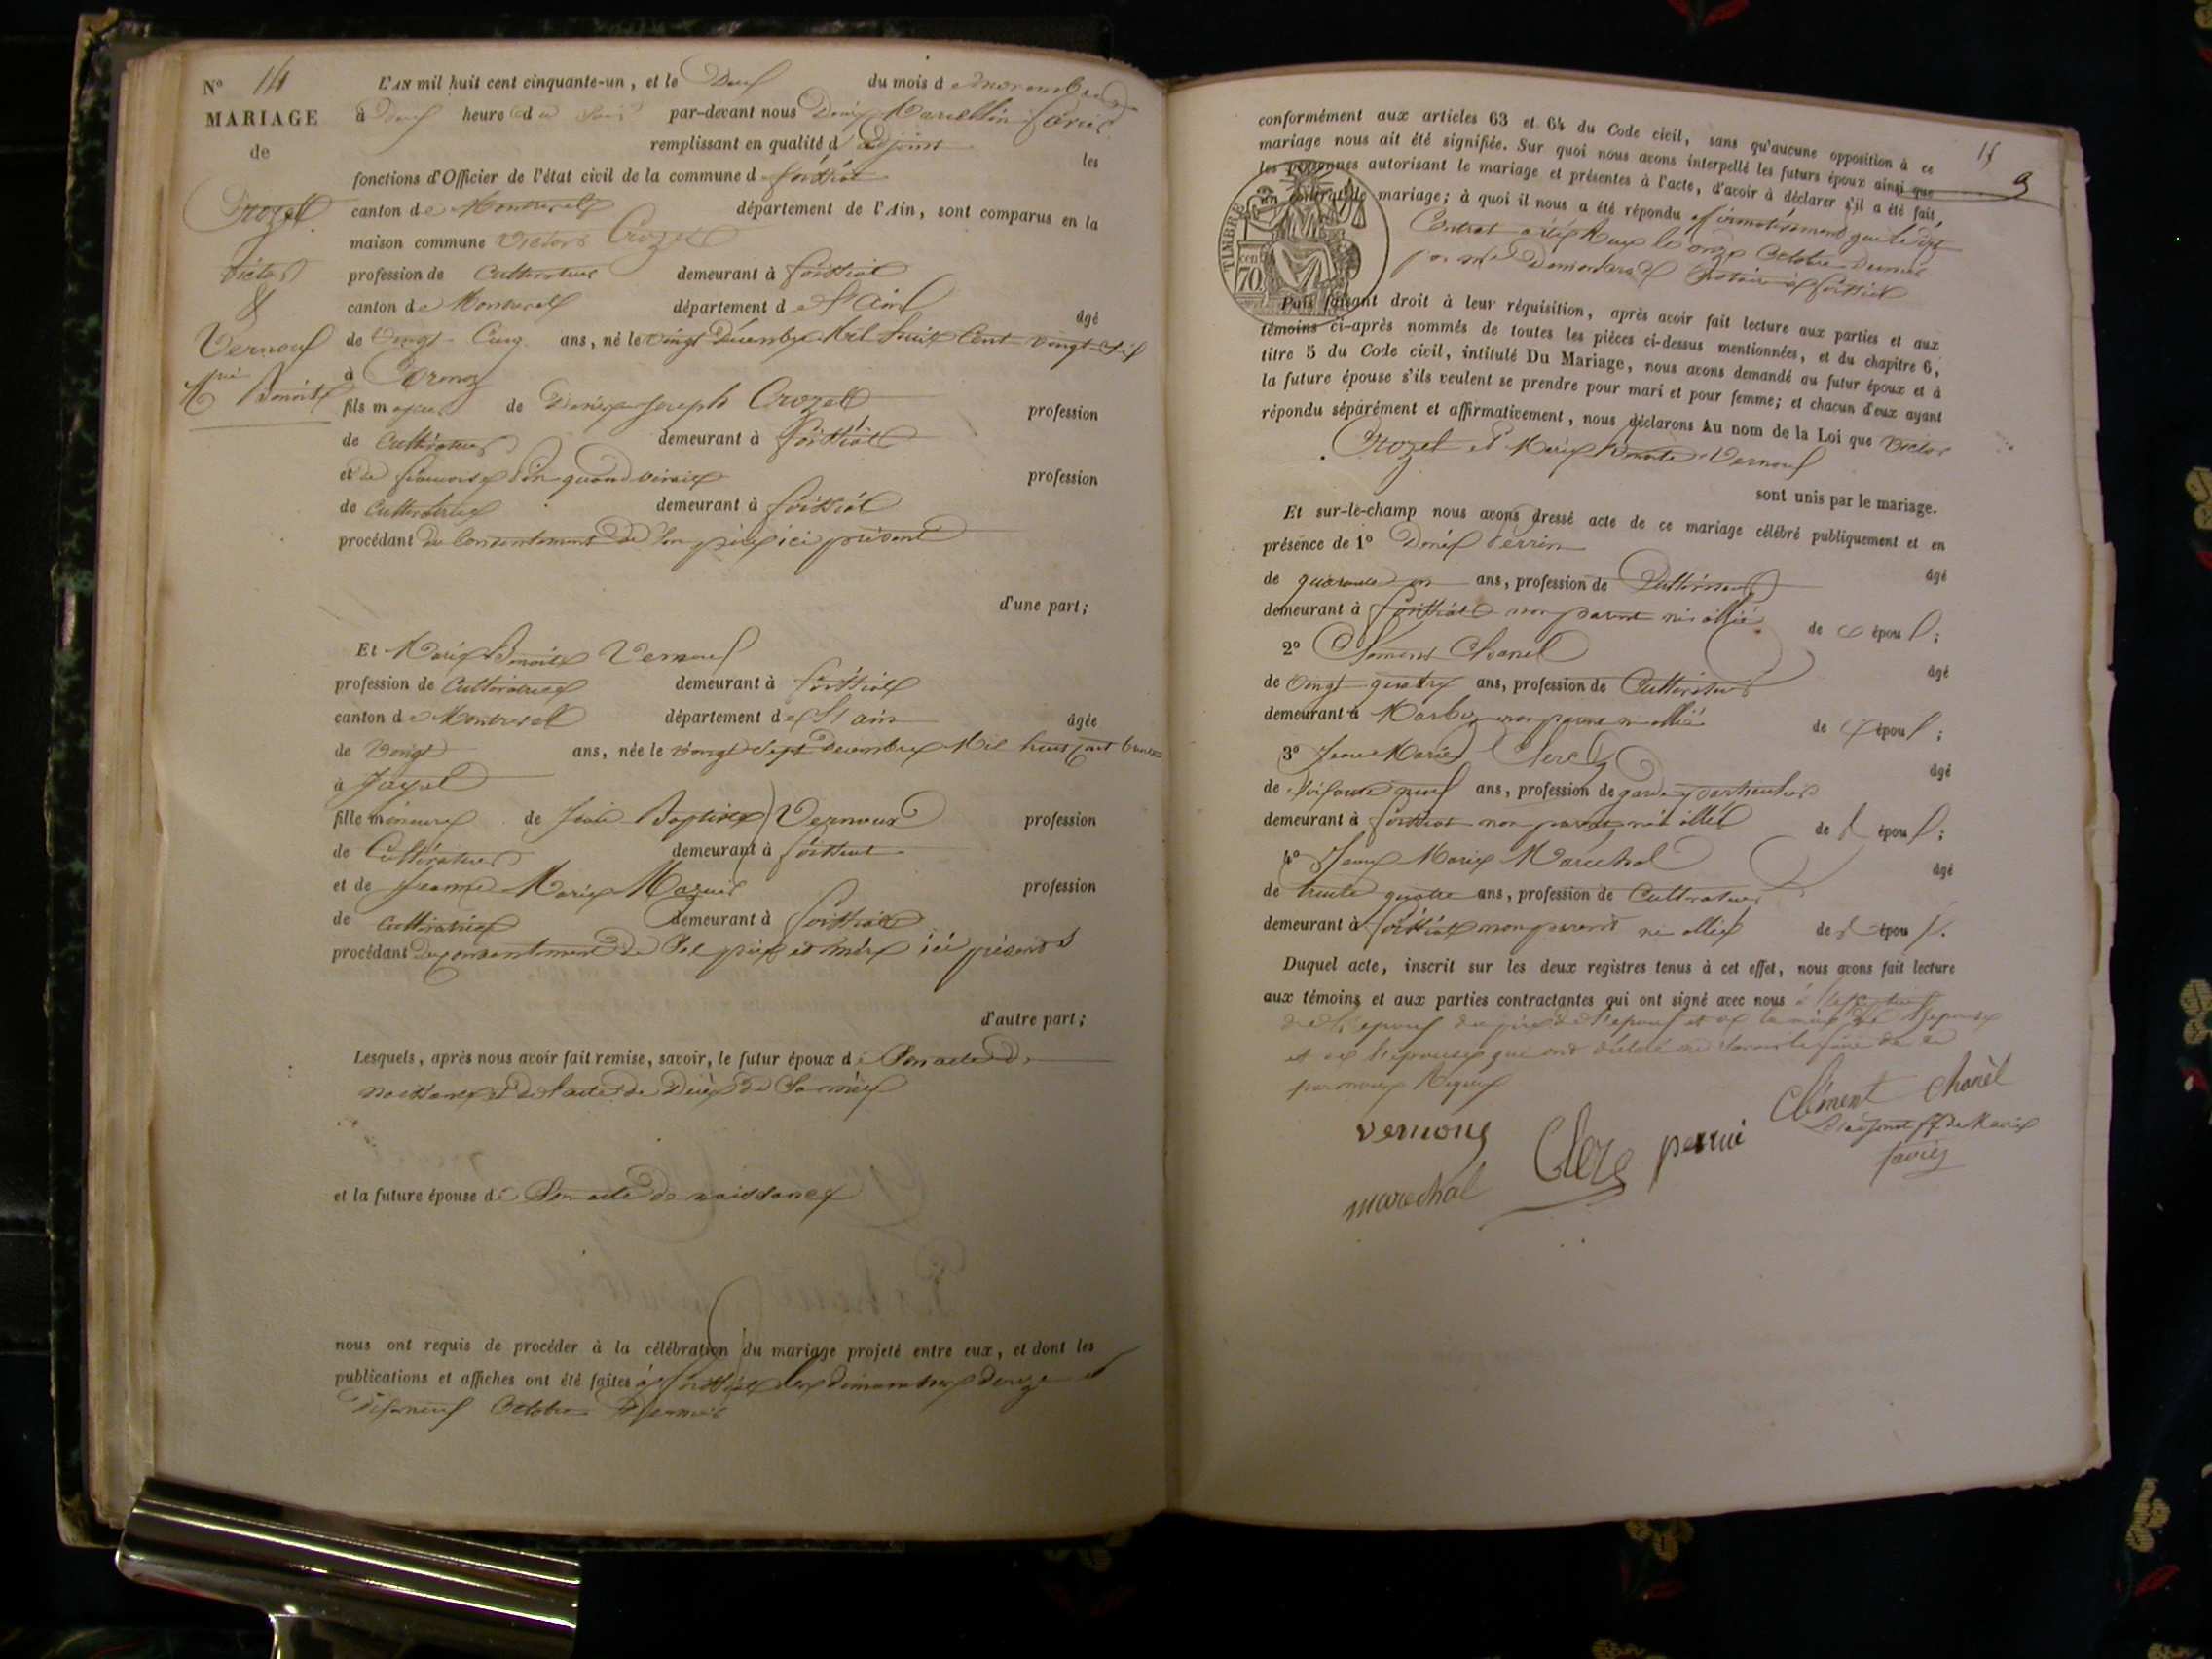 N° 14
MARIAGE
de
Crozet
Victor
&
Vernoux
Mie Benoite
L'AN mil huit cent cinquante-un, et le Deux du mois de novembre
à Deux heure du Soir par-devant nous Denis Marcellin favier
remplissant en qualité d'adjoint les
fonctions d'Officier de l'état civil de la commune de foissiat
canton de Montrevel département de l'Ain, sont comparus en la
maison commune Victor Crozet
profession de Cultivateur demeurant à foissiat
canton de Montrevel département de l'ain âgé
de vingt Cinq ans, né le vingt Décembre Mil huit Cent vingt
à Cormoz
fils majeur de Joseph Crozet profession
de Cultivateur demeurant à foissiat
et de françoise profession
de Cultivatrice demeurant à foissiat
procédant du Consentement de Son père ici présent
d'une part;
Et Marie Benoite Vernoux
profession de Cultivatrice demeurant à foissiat
canton de Montrevel département de l'ain âgée
de vingt ans, née le vingt Sept Decembre Mil huit Cent trente
à Jayat
fille mineure de Jean Baptiste Vernoux profession
de Cultivateur demeurant à foissiat
et de Jeanne Marie Mazuir profession
de Cultivatrice demeurant à foissiat
procédant du consentement de Ses père et mère ici présents
d'autre part;
Lesquels, après nous avoir fait remise, savoir, le futur époux de Son acte de
naissance et de l'acte de Décès de Sa mère
et la future épouse de Son acte de naissance
nous ont requis de procéder à la célébration du mariage projeté entre eux, et dont les
publications et affiches ont été faites à foissiat les dimanches douze et
dix neuf Octobre dernier
15
conformément aux articles 63 et 64 du Code civil, sans qu'aucune opposition à ce
mariage nous ait été signifiée. Sur quoi nous avons interpellé les futurs époux ainsi que
les personnes autorisant le mariage et présentes à l'acte, d'avoir à déclarer s'il a été fait
un contrat de mariage; à quoi il nous a été répondu affirmativement que le dit
Contrat a été Reçu le onze Octobre Dernier
par me notaire à foissiat
TIMBRE
cen.
70
Puis faisant droit à leur réquisition, après avoir fait lecture aux parties et aux
témoins ci-après nommés de toutes les pièces ci-dessus mentionnées, et du chapitre 6,
titre 5 du Code civil, intitulé Du Mariage, nous avons demandé au futur époux et à
la future épouse s'ils veulent se prendre pour mari et pour femme; et chacun d'eux ayant
répondu séparément et affirmativement, nous déclarons Au nom de la Loi que Victor
Crozet et Marie Benoite Vernoux
sont unis par le mariage.
Et sur-le-champ nous avons dressé acte de ce mariage célébré publiquement et en
présence de 1° Denis Perrin âgé
de quarante un ans, profession de Cultivateur
demeurant à foissiat non parent ni allié de époux;
2° Clément Chanel âgé
de vingt quatre ans, profession de Cultivateur
demeurant à Marboz non parent ni allié de époux;
3° Jean Marie Clerc âgé
de Soixante neuf ans, profession de garde particulier
demeurant à foissiat non parent ni allié de époux;
4° Jean Marie Marechal âgé
de trente quatre ans, profession de Cultivateur
demeurant à foissiat non parent ni allié de époux.
Duquel acte, inscrit sur les deux registres tenus à cet effet, nous avons fait lecture
aux témoins et aux parties contractantes qui ont signé avec nous à l'exception
de l'époux du père de l'époux et de la mère de l'épouse
et de l'épouse qui ont déclaré ne Savoir le faire de ce
par nous Requis
vernoux Clerc perrin Clément Chanel
marechal L'adjoint ff de Maire
favier